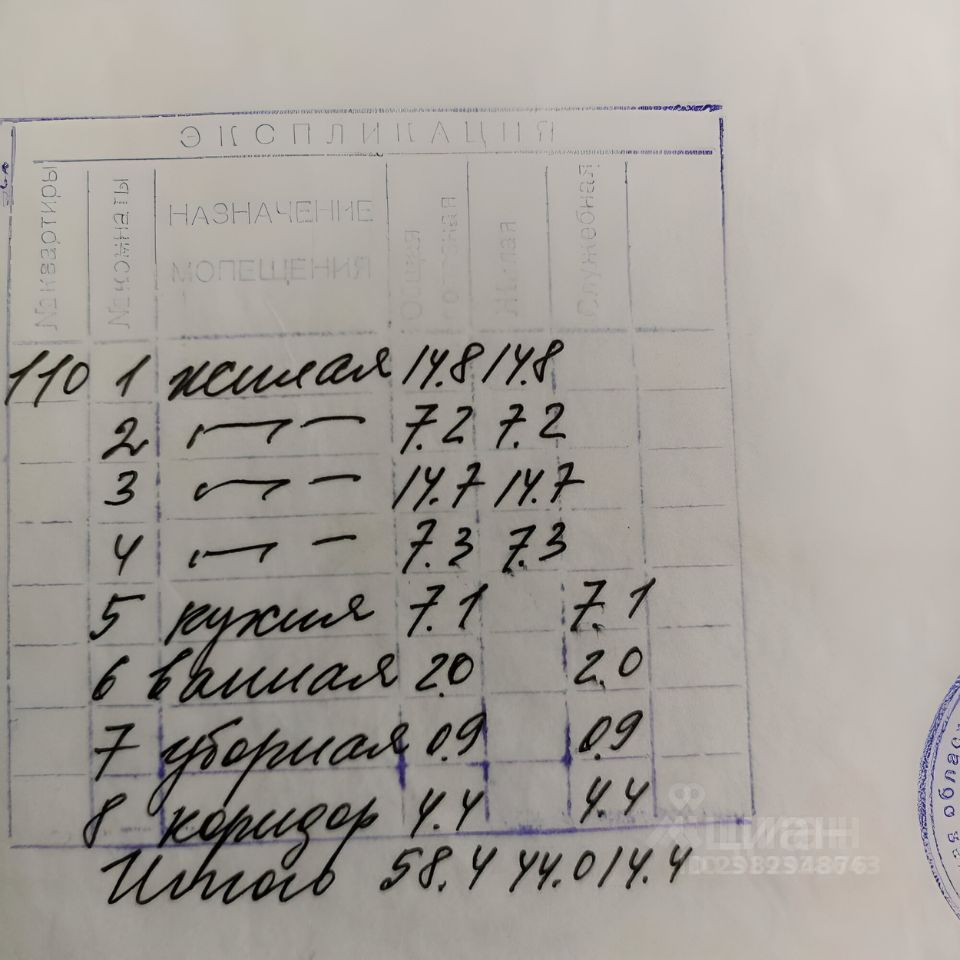 ЭКСПЛИКАЦИЯ
№ квартиры № комнаты НАЗНАЧЕНИЕ ПОМЕЩЕНИЯ Общая Жилая Служебная
110 1 жилая 14.8 14.8
2 —〃— 7.2 7.2
3 —〃— 14.7 14.7
4 —〃— 7.3 7.3
5 кухня 7.1 7.1
6 ванная 2.0 2.0
7 уборная 0.9 0.9
8 коридор 4.4 4.4
Итого 58.4 44.0 14.4
циан
ая област